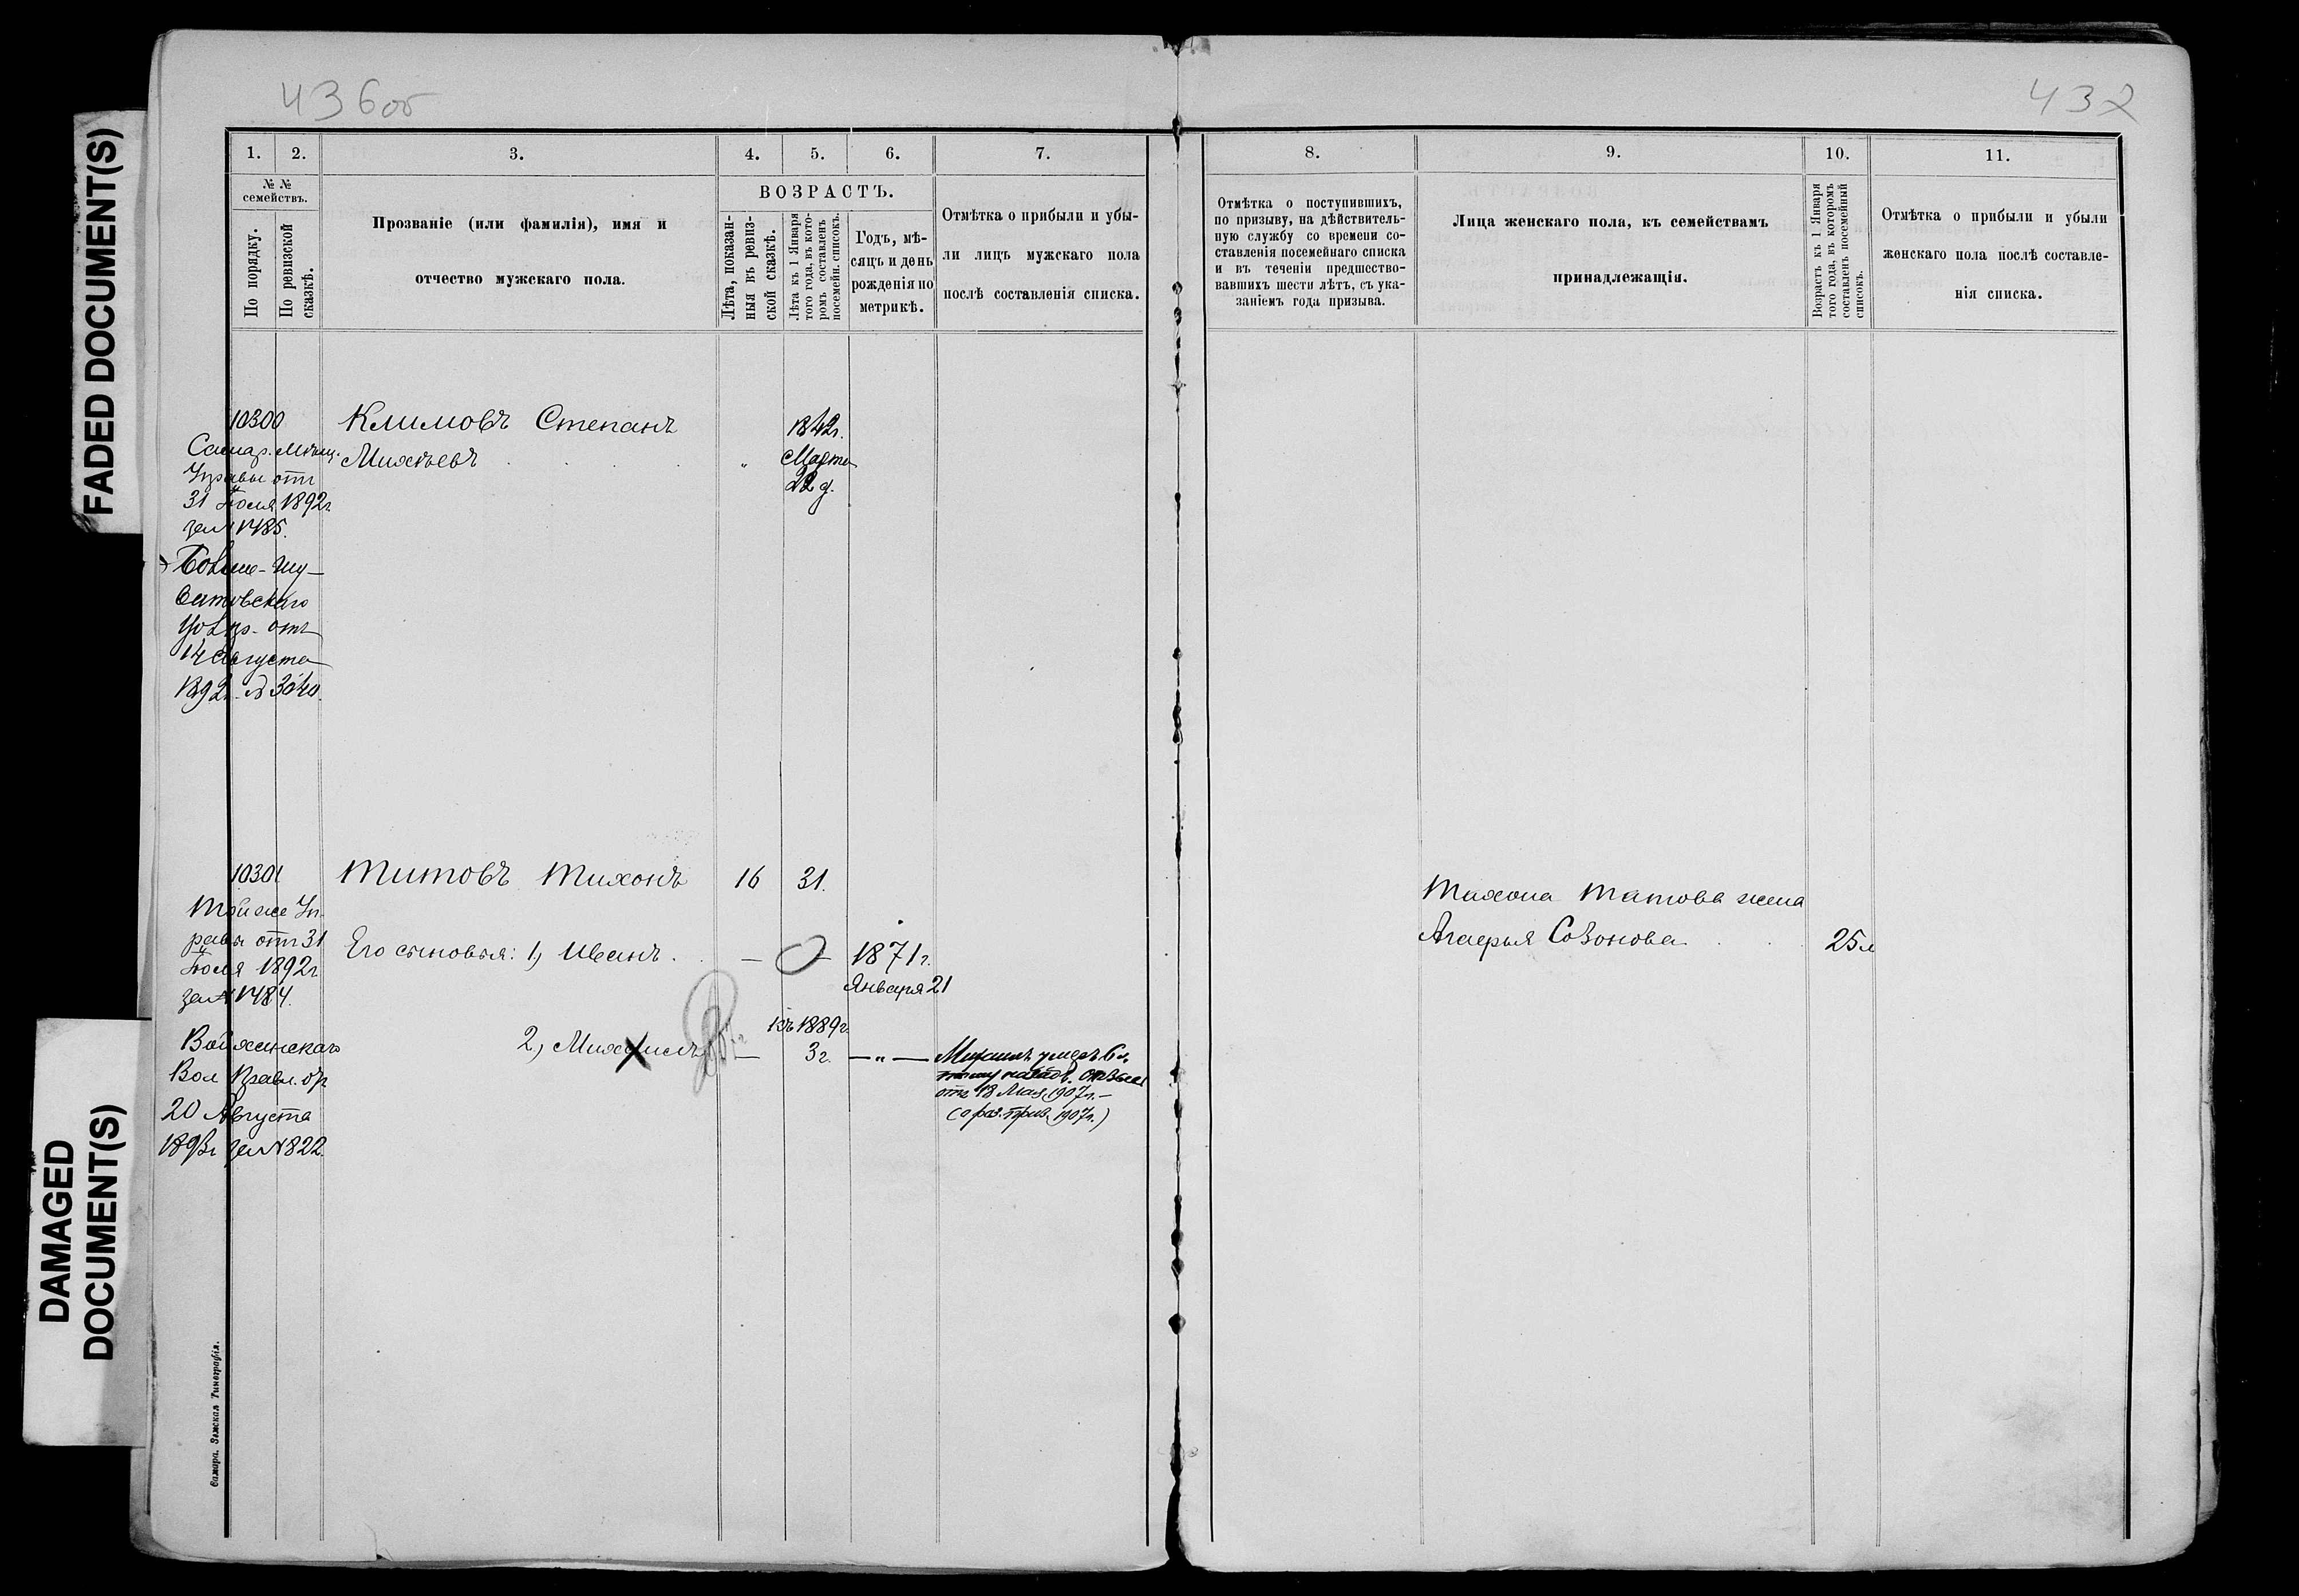 436об
432
FADED DOCUMENT(S)
DAMAGED
DOCUMENT(S)
1. 2. 3. 4. 5. 6. 7.
№ №
семействъ.
По порядку.
По ревизской
сказкѣ.
Прозваніе (или фамилія), имя и
отчество мужскаго пола.
ВОЗРАСТЪ.
Лѣта, показан-
ныя въ ревиз-
ской сказкѣ.
Лѣта къ 1 Января
того года, въ кото-
ромъ составленъ
посемейн. списокъ.
Годъ, мѣ-
сяцъ и день
рожденія по
метрикѣ.
Отмѣтка о прибыли и убы-
ли лицъ мужскаго пола
послѣ составленія списка.
8. 9. 10. 11.
Отмѣтка о поступившихъ,
по призыву, на дѣйствитель-
ную службу со времени со-
ставленія посемейнаго списка
и въ теченіи предшество-
вавшихъ шести лѣтъ, съ ука-
заніемъ года призыва.
Лица женскаго пола, къ семействамъ
принадлежащія.
Возрастъ къ 1 Января
того года, въ которомъ
составленъ посемейный
списокъ.
Отмѣтка о прибыли и убыли
женскаго пола послѣ составле-
нія списка.
10300 Климовъ Степанъ 1842г.
Самар. Мѣщ. Михѣевъ " Марта
22 д.
Управы отъ
31 Іюля 1892г.
за № 1485.
отъ
14 Августа
1892г. №
10301 Титовъ Тихонъ 16 31.
Той же Уп-
равы отъ 31
Іюля 1892г
за № 1484.
Его сыновья: 1, Иванъ. — — 1871г.
Января 21
къ 1889г.
2, Михаилъ — 3г. — " —
Вол. Правл. от
20 Августа
189 г. за № 822.
Михаилъ умеръ
отъ 18 Мая 1907г.—
1907г.)
Тихона Титова жена
Агафья Созонова 25 л
Самара. Земская Типографія.